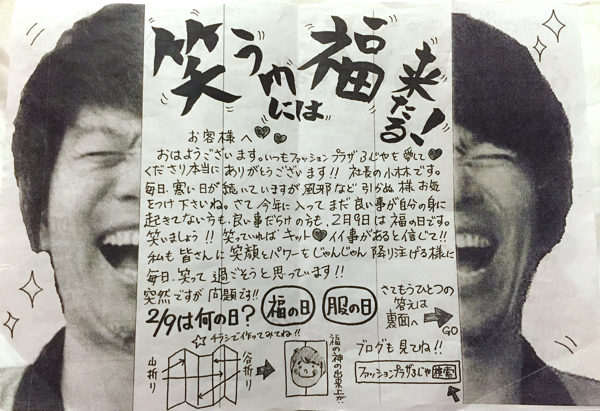 笑う門には福来たる!
お客様へ
おはようございます。いつもファッションプラザふじやを愛して
くださり本当にありがとうございます!!社長の小林です。
毎日寒い日が続いていますが風邪など引かぬ様お気
をつけ下さいね。さて今年に入ってまだ良い事が自分の身に
起きてない方も、良い事だらけの方も、2月9日は福の日です。
笑いましょう!!笑っていればキット♥イイ事があると信じて!!
私も皆さんに笑顔とパワーをじゃんじゃん降り注げる様に
毎日、笑って過ごそうと思っています!!
突然ですが問題です!!
2/9は何の日? 福の日 服の日
さてもうひとつの
答えは
裏面へ
GO
☆チラシで作ってみてね!!
山折り
谷折り
福の神の出来上がり
ブログも見てね!!
ファッションプラザふじや 検索